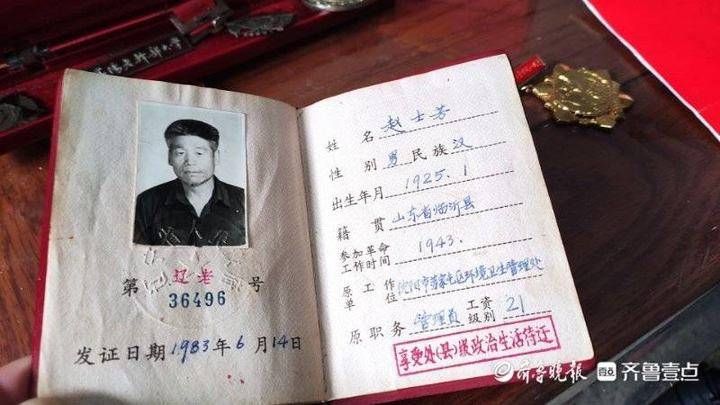 第 辽老 号
36496
发证日期 1983年 6月 14日
姓名 赵士芳
性别 男 民族 汉
出生年月 1925.1
籍贯 山东省临沂县
参加革命工作时间 1943.
原工作单位 沈阳市苏家屯区环境卫生管理处
原职务 管理员 工资级别 21
享受处(县)级政治生活待遇
齐鲁晚报 齐鲁壹点